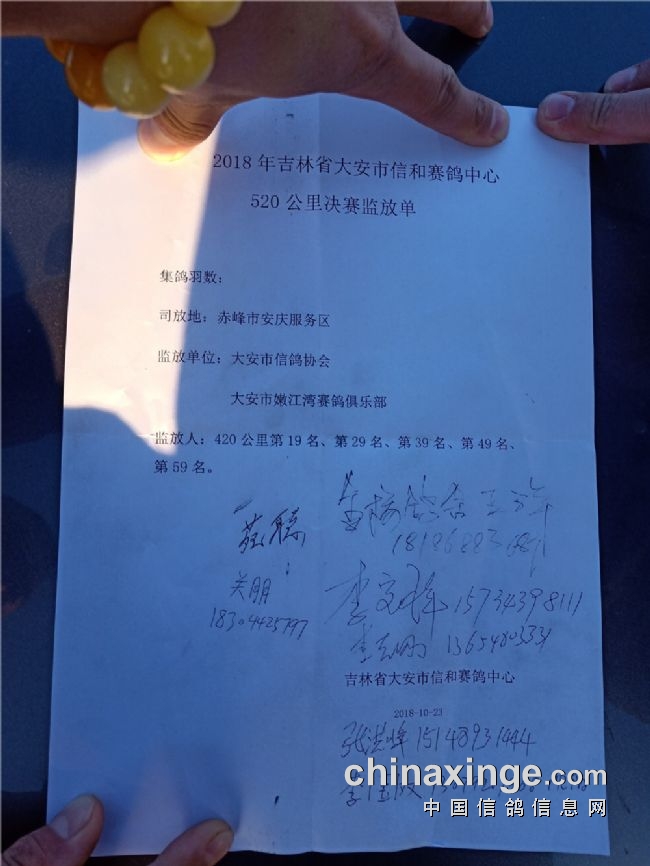 2018 年吉林省大安市信和赛鸽中心
520 公里决赛监放单
集鸽羽数：
司放地：赤峰市安庆服务区
监放单位：大安市信鸽协会
大安市嫩江湾赛鸽俱乐部
监放人：420 公里第 19 名、第 29 名、第 39 名、第 49 名、
第 59 名。
关朋
18304425797
15734398111
吉林省大安市信和赛鸽中心
2018-10-23
张洪峰 15148931444
chinaxinge.com
中国信鸽信息网